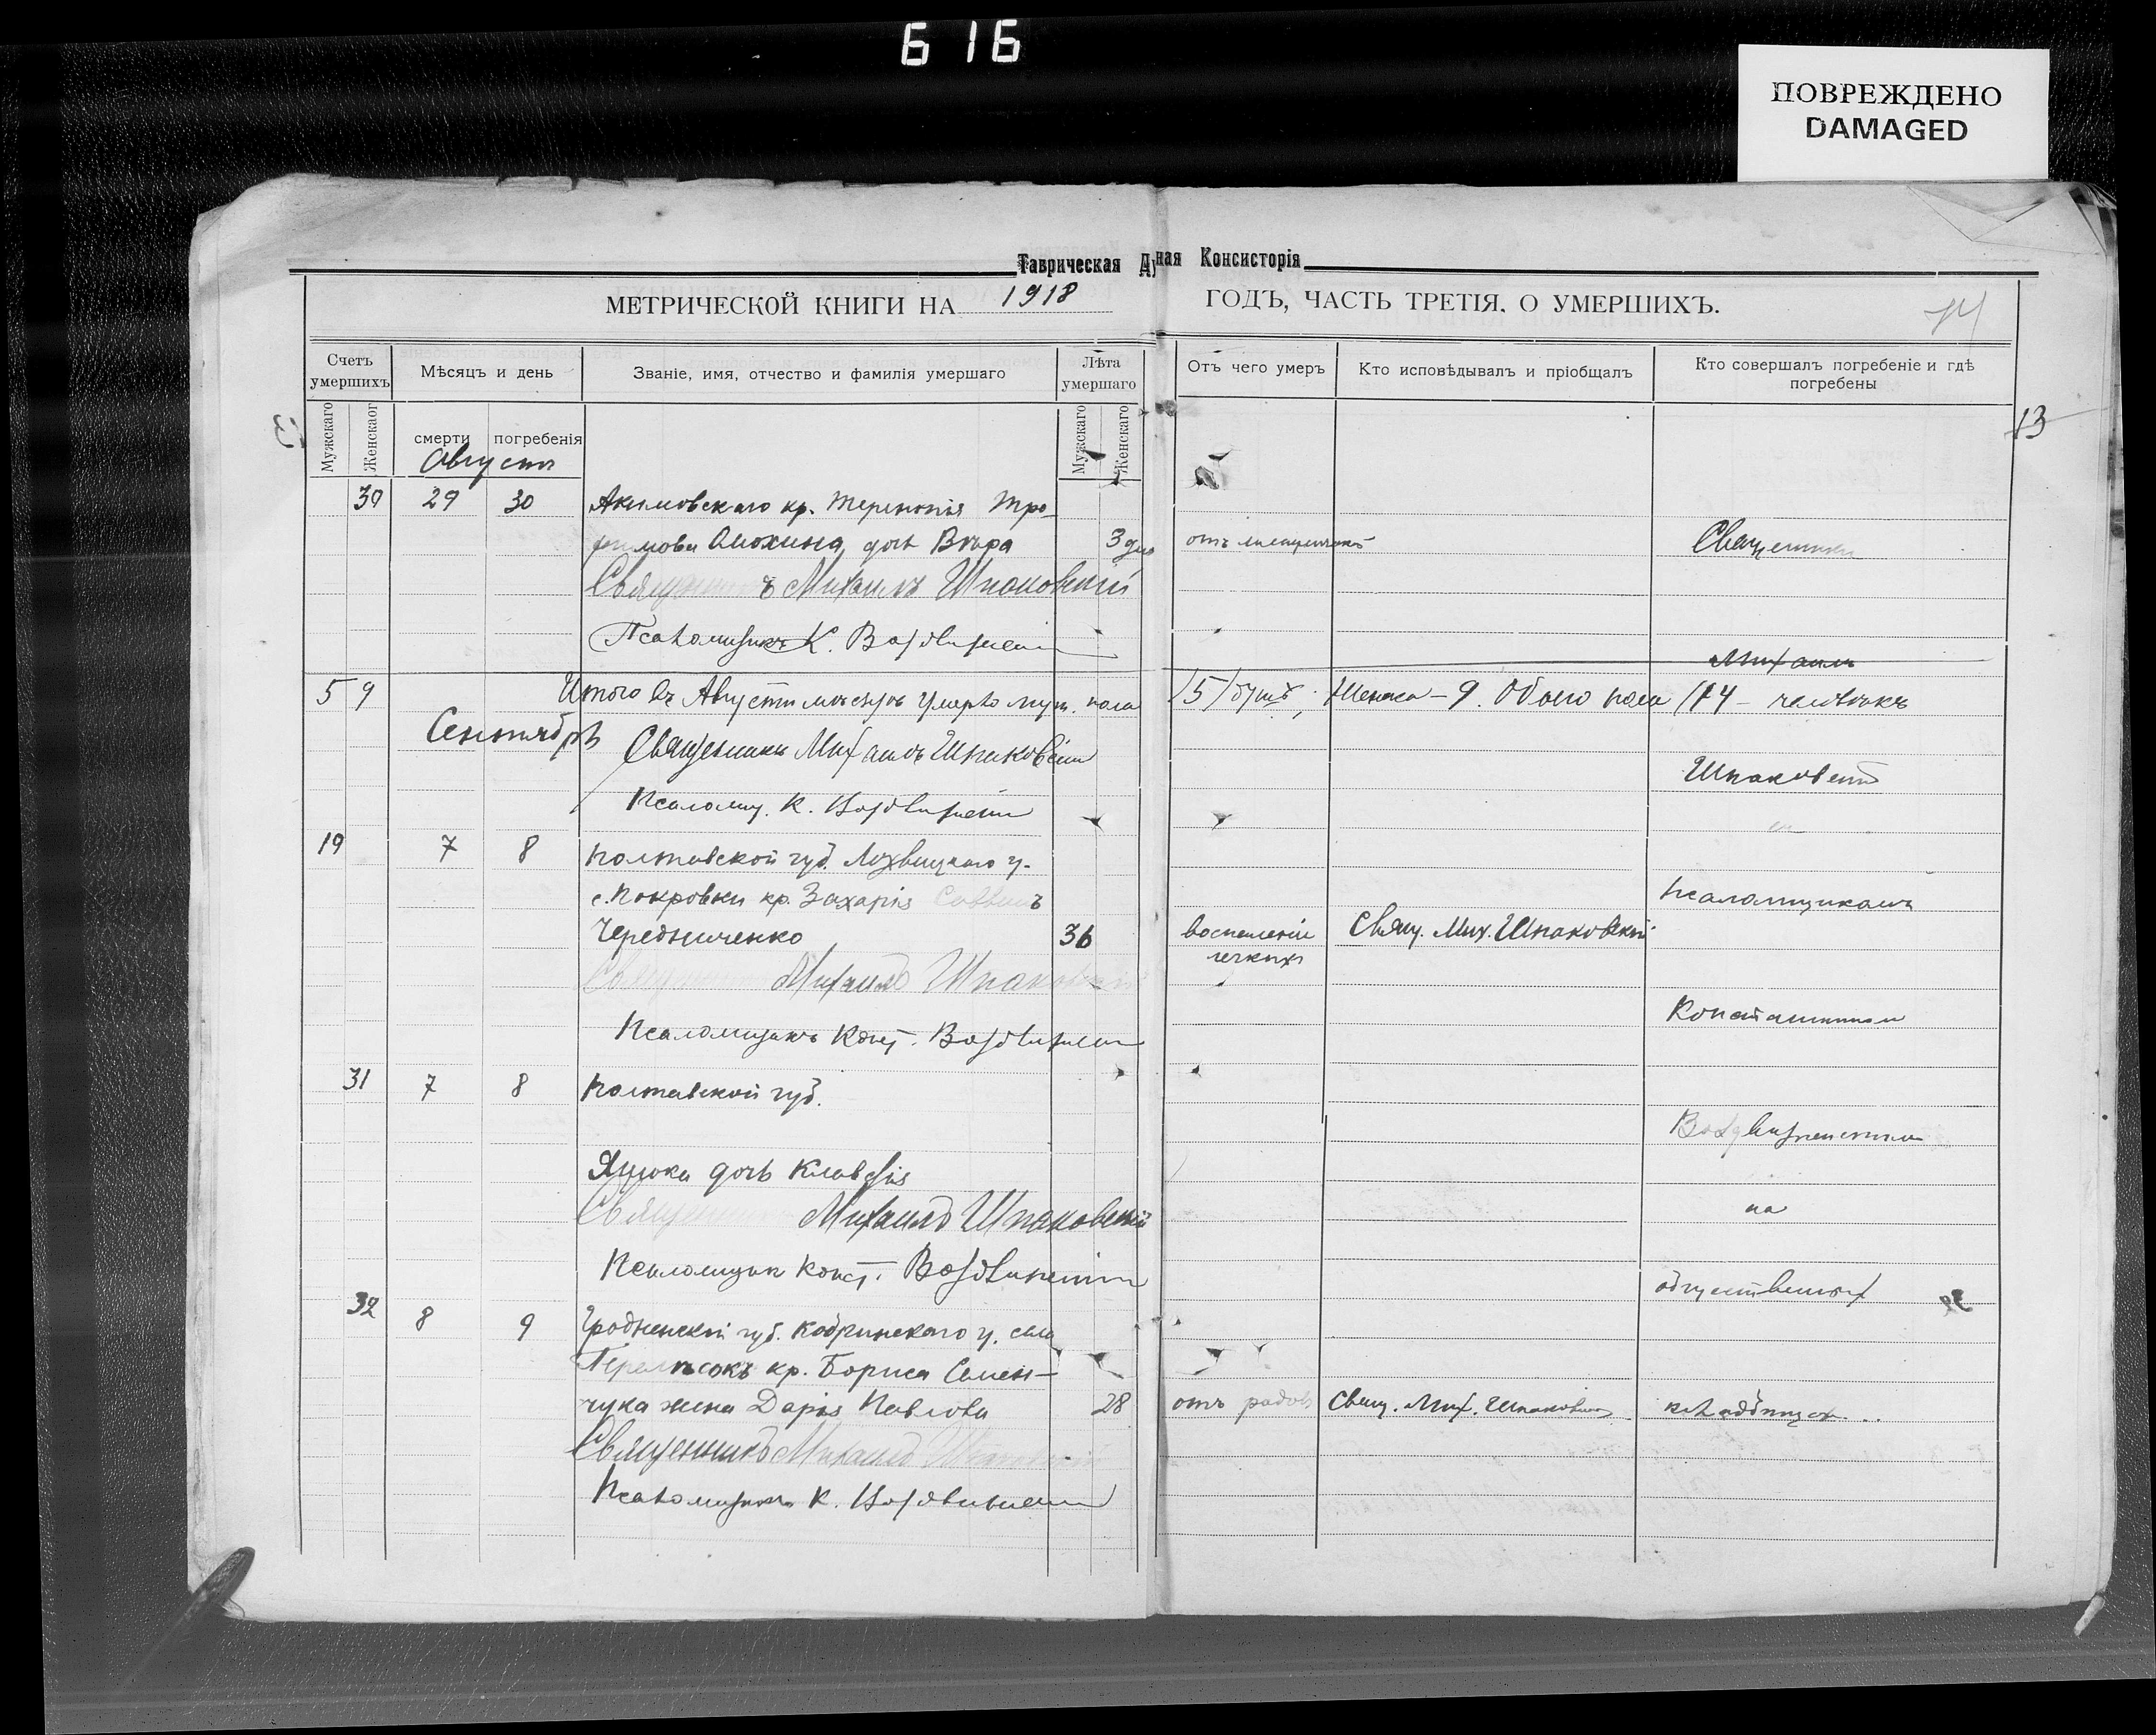 616
ПОВРЕЖДЕНО
DAMAGED
Таврическая Духовная Консисторія
МЕТРИЧЕСКОЙ КНИГИ НА 1918 ГОДЪ, ЧАСТЬ ТРЕТІЯ, О УМЕРШИХЪ.
14
13
Счетъ умершихъ
Мѣсяцъ и день
Званіе, имя, отчество и фамилія умершаго
Лѣта умершаго
Отъ чего умеръ
Кто исповѣдывалъ и пріобщалъ
Кто совершалъ погребеніе и гдѣ погребены
Мужскаго
Женскаог
смерти
погребенія
Мужскаго
Женскаго
Августъ
30 29 30 Акимовскаго кр. Терентія Тро-
фимова Анохина дочь Вѣра 3 дня Священникъ
Священникъ Михаилъ Шпаковскій
Псаломщикъ К. Воздвиженскій
Михаилъ
5 9 Итого въ Августѣ мѣсяцѣ умерло муж. пола (5) душъ; Женска - 9. Обоего пола (14 - человѣкъ
Сентябрь
Священникъ Михаилъ Шпаковскій
Шпаковскій
Псаломщ. К. Воздвиженскій
19 7 8 Полтавской губ. Лохвицкаго у.
с. Покровки кр. Захарія Саввинъ
псаломщикомъ
Чередниченко 36 воспаленіе легкихъ Свящ. Мих. Шпаковскій
Священникъ Михаилъ Шпаковскій
Псаломщикъ Конст. Воздвиженскій
Константиномъ
31 7 8 Полтавской губ.
Воздвиженскимъ
Яцюка дочь Клавдія
Священникъ Михаилъ Шпаковскій
на
Псаломщик Конст. Воздвиженскій
общественномъ
32 8 9 Гродненской губ. Кобринскаго у. села
кр. Бориса Семен-
чука жена Дарія Павлова 28 отъ родовъ Свящ. Мих. Шпаковскій кладбищѣ...
Священникъ Михаилъ Шпаковскій
Псаломщикъ К. Воздвиженскій